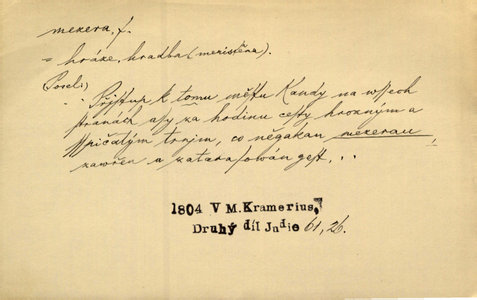 mezera, f.
= hráze, hradba (meristěna).
Přjstup k tomu městu Kandy na wssech
stranách asy za hodinu cesty hrozným a
sspičatým trnjm, co negakau mezerau,
zawřen a zatarasowán gest, ..
1804 V M. Kramerius,
Druhý díl Jndie 61, 26.